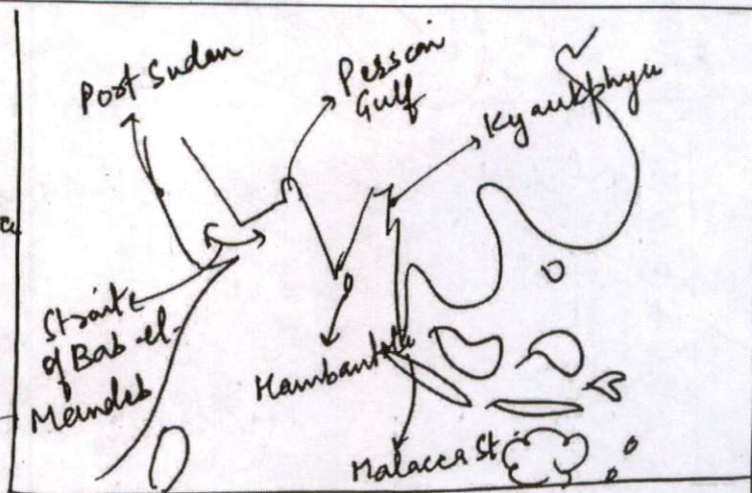 Port Sudan
Persian
Gulf
Kyaukphyu
Strait
of Bab-el-
Mandeb
Hambantota
Malacca St.